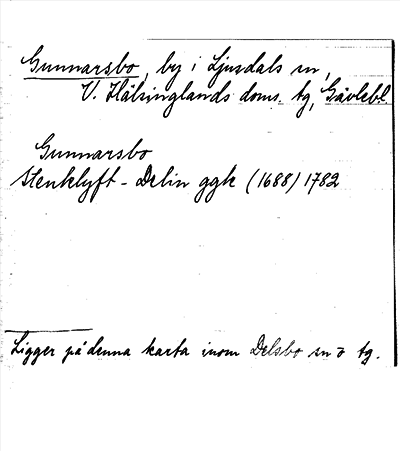 Gunnarsbo, by i Ljusdals sn,
V. Hälsinglands doms. tg, Gävlebl.
Gunnarsbo
Stenklyft - Delin ggk (1688) 1782
Ligger på denna karta inom Delsbo sn o tg.